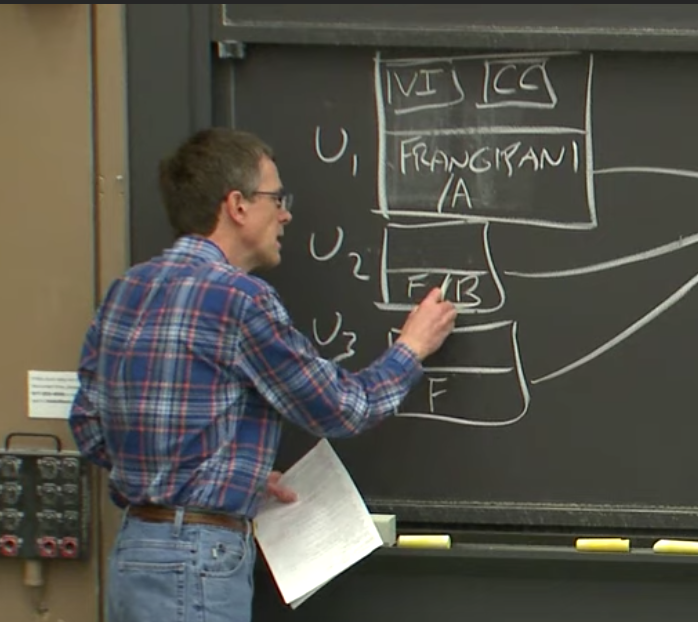 VI CC
U1
FRANGIPANI
/A
U2
F/B
U3
F